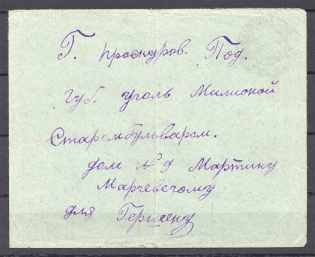 Г. Проскуров. Под.
Губ. уголь Милионой
Старомбульваром.
дом № 9 Мартину
Марчевечому
для Гершена